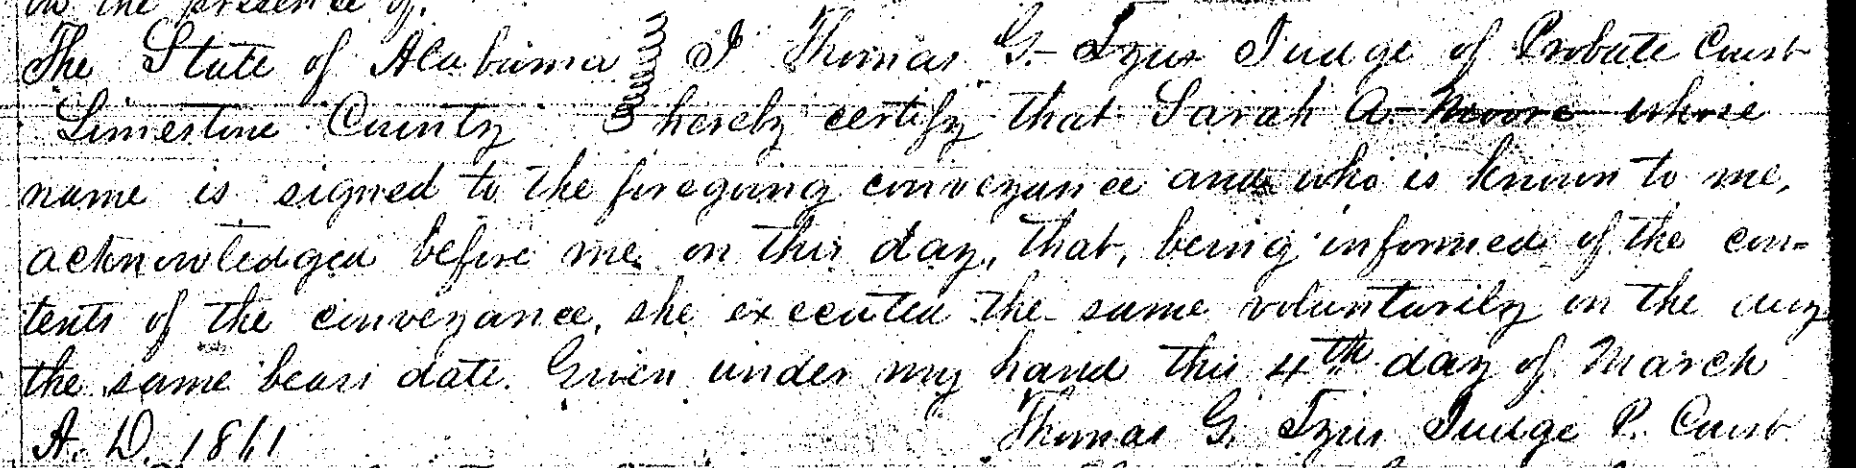 in the presence of.
The State of Alabama } I Thomas G. Tyus Judge of Probate Court
Limestone County } hereby certify that Sarah A. Moore whose
name is signed to the foregoing conveyance and who is known to me,
acknowledged before me on this day, that, being informed of the con=
tents of the conveyance, she executed the same voluntarily on the day
the same bears date. Given under my hand this 4th day of March
A. D. 1861
Thomas G. Tyus Judge P. Court